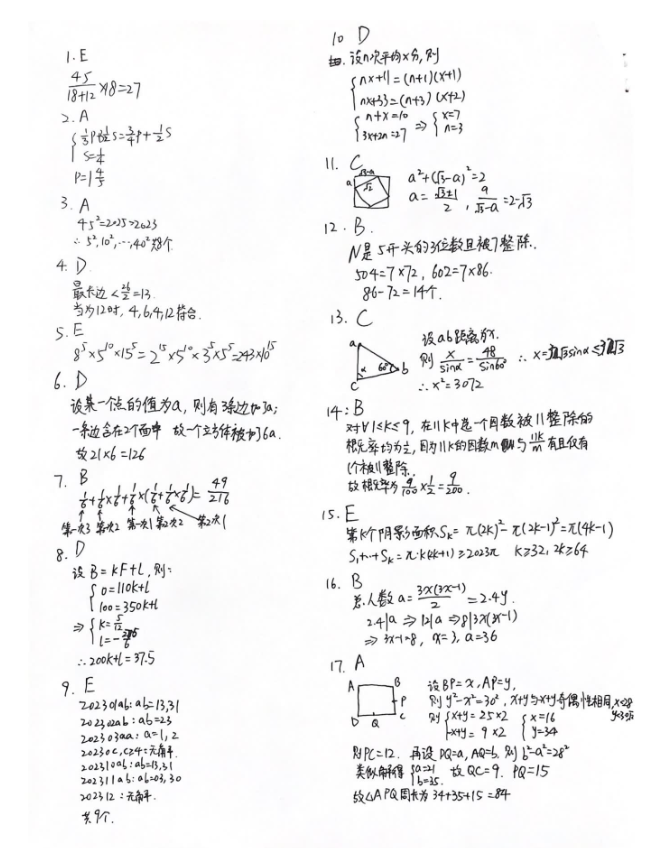 1. E
45/(18+12) ×18=27
2. A
{ 1/3P+1/2S=3/4P+1/2S
S=1/4
P=1 4/5
3. A
45²=2025>2023
∴ 5², 10², …, 40² 共8个
4. D
最长边<26/2=13.
当为12时, 4,6,4,12符合.
5. E
8⁵×5¹⁰×15⁵=2¹⁵×5¹⁰×3⁵×5⁵=243×10¹⁵
6. D
设某一个点的值为a, 则有3条边加了a;
一条边含在2个面中 故一个立方体被加了6a.
故21×6=126
7. B
1/6+1/6×1/6+1/6×(1/6+1/6×1/6)=49/216
第一次3 第一次2 第一次1 第二次2 第2次1
8. D
设B=kF+l, 则:
{ 0=110k+l
100=350k+l
⇒ { k=5/12
∴200k+l=37.5
9. E
202301ab: ab=13,31
202302ab: ab=23
202303aa: a=1,2
20230c, c≥4:
202310ab: ab=13,31
202311ab: ab=03,30
202312:
共9个.
10 D
设n次平均x分, 则
{ nx+11=(n+1)(x+1)
nx+33=(n+3)(x+2)
{ n+x=10
3x+2n=27 ⇒ { x=7
n=3
11. C
√3-a
a
√2
a²+(√3-a)²=2
a=(√3±1)/2, a/(√3-a)=2-√3
12. B.
N是5开头的3位数且被7整除.
504=7×72, 602=7×86.
86-72=14个.
13. C
a
b
c
α
60°
设ab距离为x.
则 x/sinα=48/sin60° ∴ x=32√3sinα≤32√3
∴x²=3072
14: B
对∀1≤k≤9, 在11k中选一个因数被11整除的
概率均为1/2, 因为11k的因数m与11k/m有且仅有
1个被11整除.
故概率为9/100×1/2=9/200.
15. E
第k个阴影面积Sₖ=π(2k)²-π(2k-1)²=π(4k-1)
S₁+…+Sₖ=π·k(2k+1)≥2023π k≥32, 2k≥64
16. B
总人数a=3x(3x-1)/2=2.4y.
2.4|a ⇒ 12|a ⇒ 8|3x(3x-1)
⇒ 3x-1=8, x=3, a=36
17. A
A
B
P
D
Q
C
设BP=x, AP=y,
则y²-x²=30², x+y与x-y奇偶性相同,
则 { x+y=25×2
-x+y=9×2
{ x=16
y=34
则PC=12. 再设DQ=a, AQ=b. 则b²-a²=28²
类似解得 { a=21
b=35. 故QC=9. PQ=15
故△APQ周长为34+35+15=84